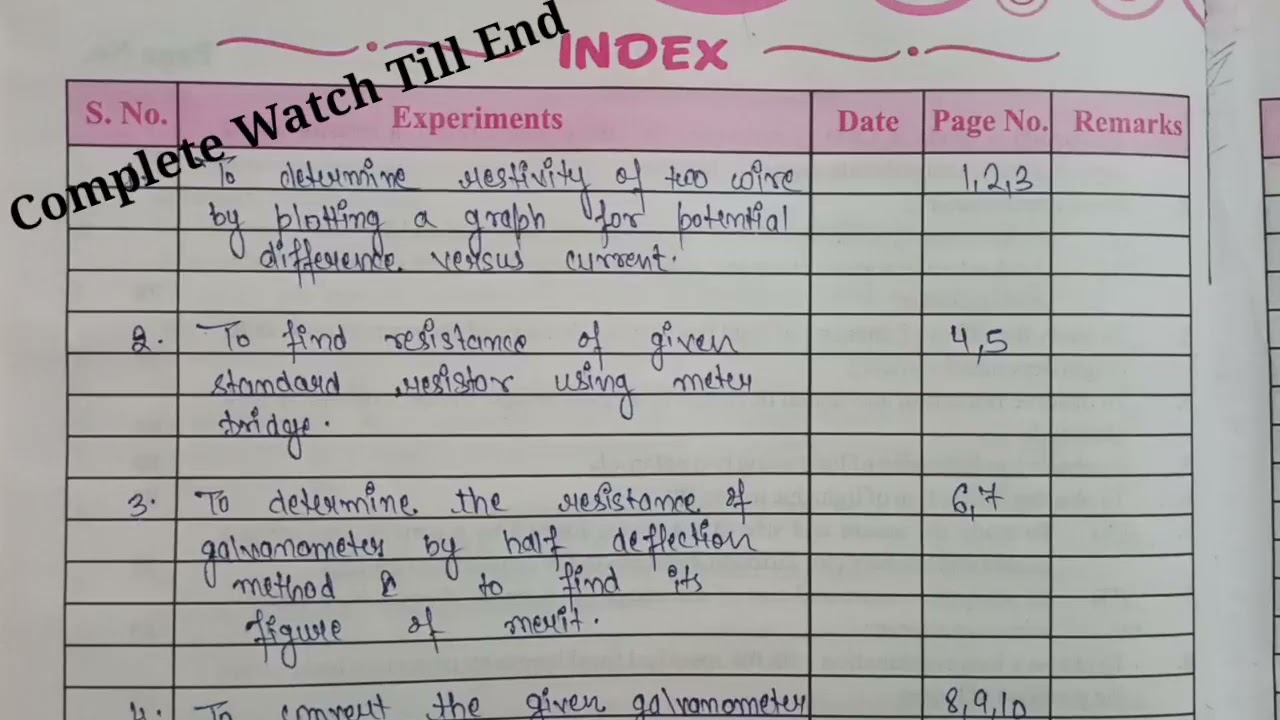 Complete Watch Till End
INDEX
S. No. Experiments Date Page No. Remarks
To determine restivity of two wire 1,2,3
by plotting a graph for potential
difference versus current.
2. To find resistance of given 4,5
standard resistor using meter
bridge.
3. To determine the resistance of 6,7
galvanometer by half deflection
method & to find its
figure of merit.
4. To convert the given galvanometer 8,9,10